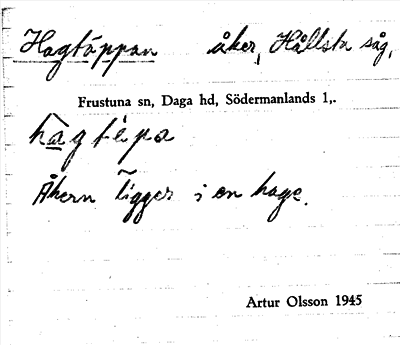 Hagtäppan åker, Hållsta såg,
Frustuna sn, Daga hd, Södermanlands l,.
hagtèpa
Åkern ligger i en hage.
Artur Olsson 1945